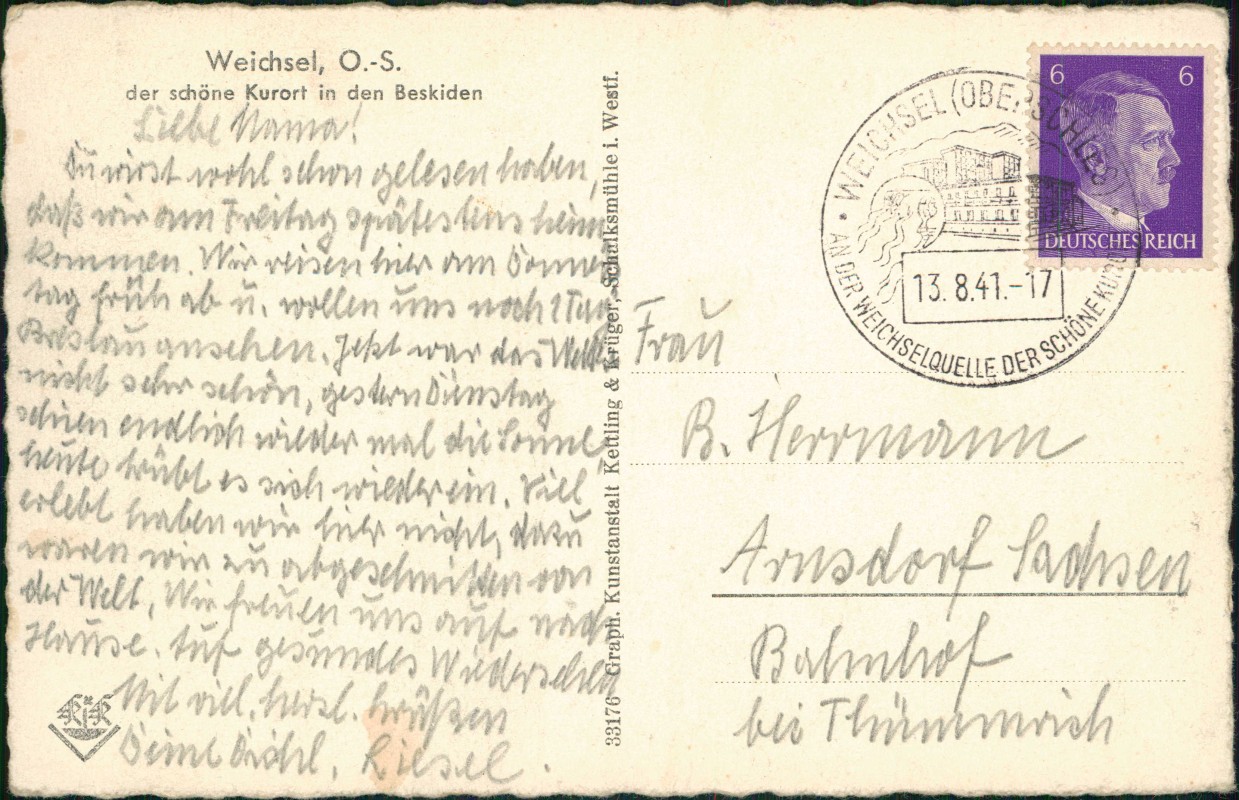 Weichsel, O.-S.
der schöne Kurort in den Beskiden
Liebe Mama!
Du wirst wohl schon gelesen haben,
daß wir am Freitag spätestens heim
kommen. Wir reisen hier am Donners
tag früh ab u. wollen uns noch 1 Tag
Breslau ansehen. Jetzt war das Wetter
nicht sehr schön, gestern Dienstag
schien endlich wieder mal die Sonne
heute trübt es sich wieder ein. Viel
erlebt haben wir hier nicht, dazu
waren wir zu abgeschnitten von
der Welt. Wir freuen uns auf nach
Hause. Auf gesundes Wiedersehen
Mit viel. herzl. Grüßen
Deine Liesel.
K & K
33176 Graph. Kunstanstalt Kettling & Krüger, Schalksmühle i. Westf.
WEICHSEL (OBERSCHLES)
AN DER WEICHSELQUELLE DER SCHÖNE KURORT
13.8.41.-17
6 6
DEUTSCHES REICH
Frau
B. Herrmann
Arnsdorf Sachsen
Bahnhof
bei Thümmrich